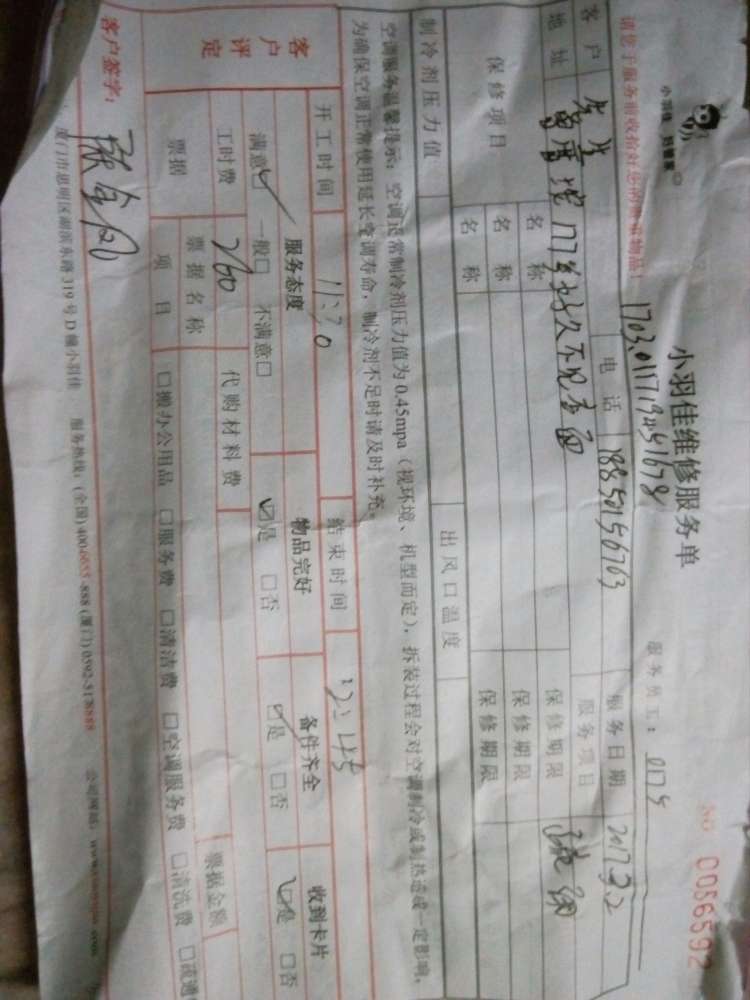 小羽佳 好管家
小羽佳维修服务单
NO 0056592
请您于服务前收拾好您的贵重物品！
服务员工：
客户 电话 18850156703 服务日期 2017.9.2
地址 服务项目
保修项目 名称 保修期限
名称 保修期限
名称 保修期限
制冷剂压力值 出风口温度
空调服务温馨提示：空调正常制冷剂压力值为0.45mpa（视环境、机型而定），拆装过程会对空调制冷或制热造成一定影响，
为确保空调正常使用延长空调寿命，制冷剂不足时请及时补充。
开工时间 11:30 结束时间 12:45
客户评定 服务态度 物品完好 备件齐全 收到卡片
满意☑ 一般□ 不满意□ ☑是 □否 ☑是 □否 ☑是 □否
工时费 260 代购材料费
票据 票据名称 票据金额
项目 □搬办公用品 □服务费 □清洁费 □空调服务费 □清洗费
客户签字：
厦门市思明区湖滨东路319号D幢小羽佳 服务热线：(全国)400-6655-888 (厦门)0592-5178888 公司网址：